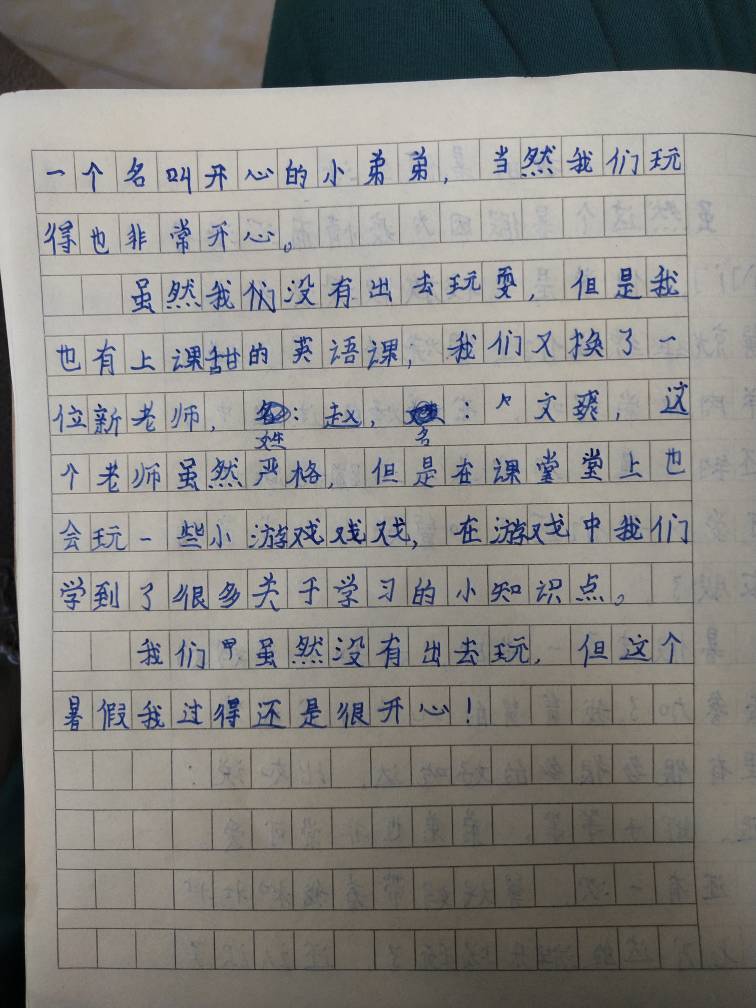 一个名叫开心的小弟弟，当然我们玩
得也非常开心。
虽然我们没有出去玩耍，但是我
也有上课甜的英语课，我们又换了一
位新老师，姓：赵，名：文
，这
个老师虽然严格，但是在课堂堂上也
会玩一些小游戏戏戏，在游戏中我们
学到了很多关于学习的小知识点。
我们虽然没有出去玩，但这个
暑假我过得还是很开心！